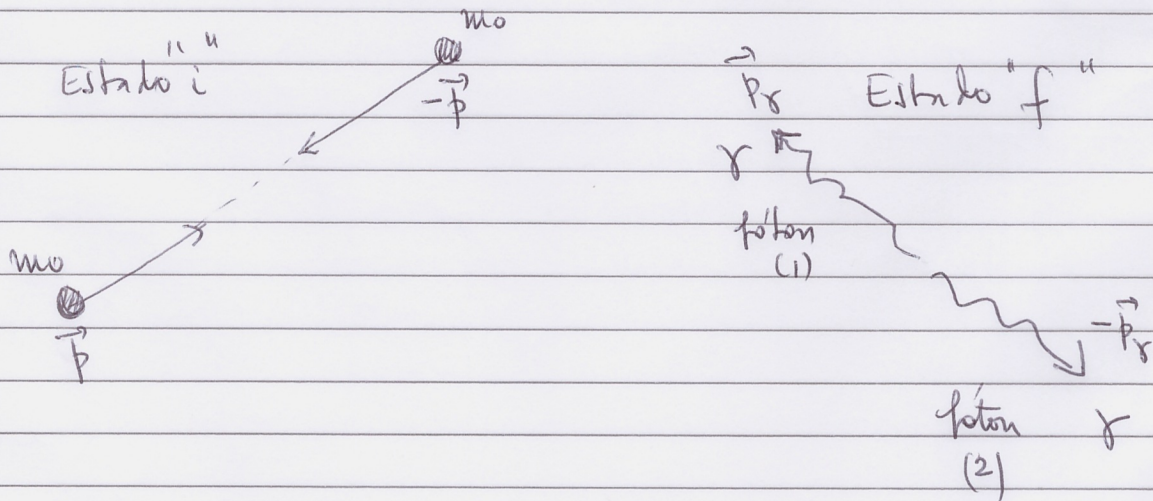 Estado "i"
mo
-p⃗
mo
p⃗
p⃗γ Estado "f"
γ
fóton
(1)
-p⃗γ
fóton γ
(2)